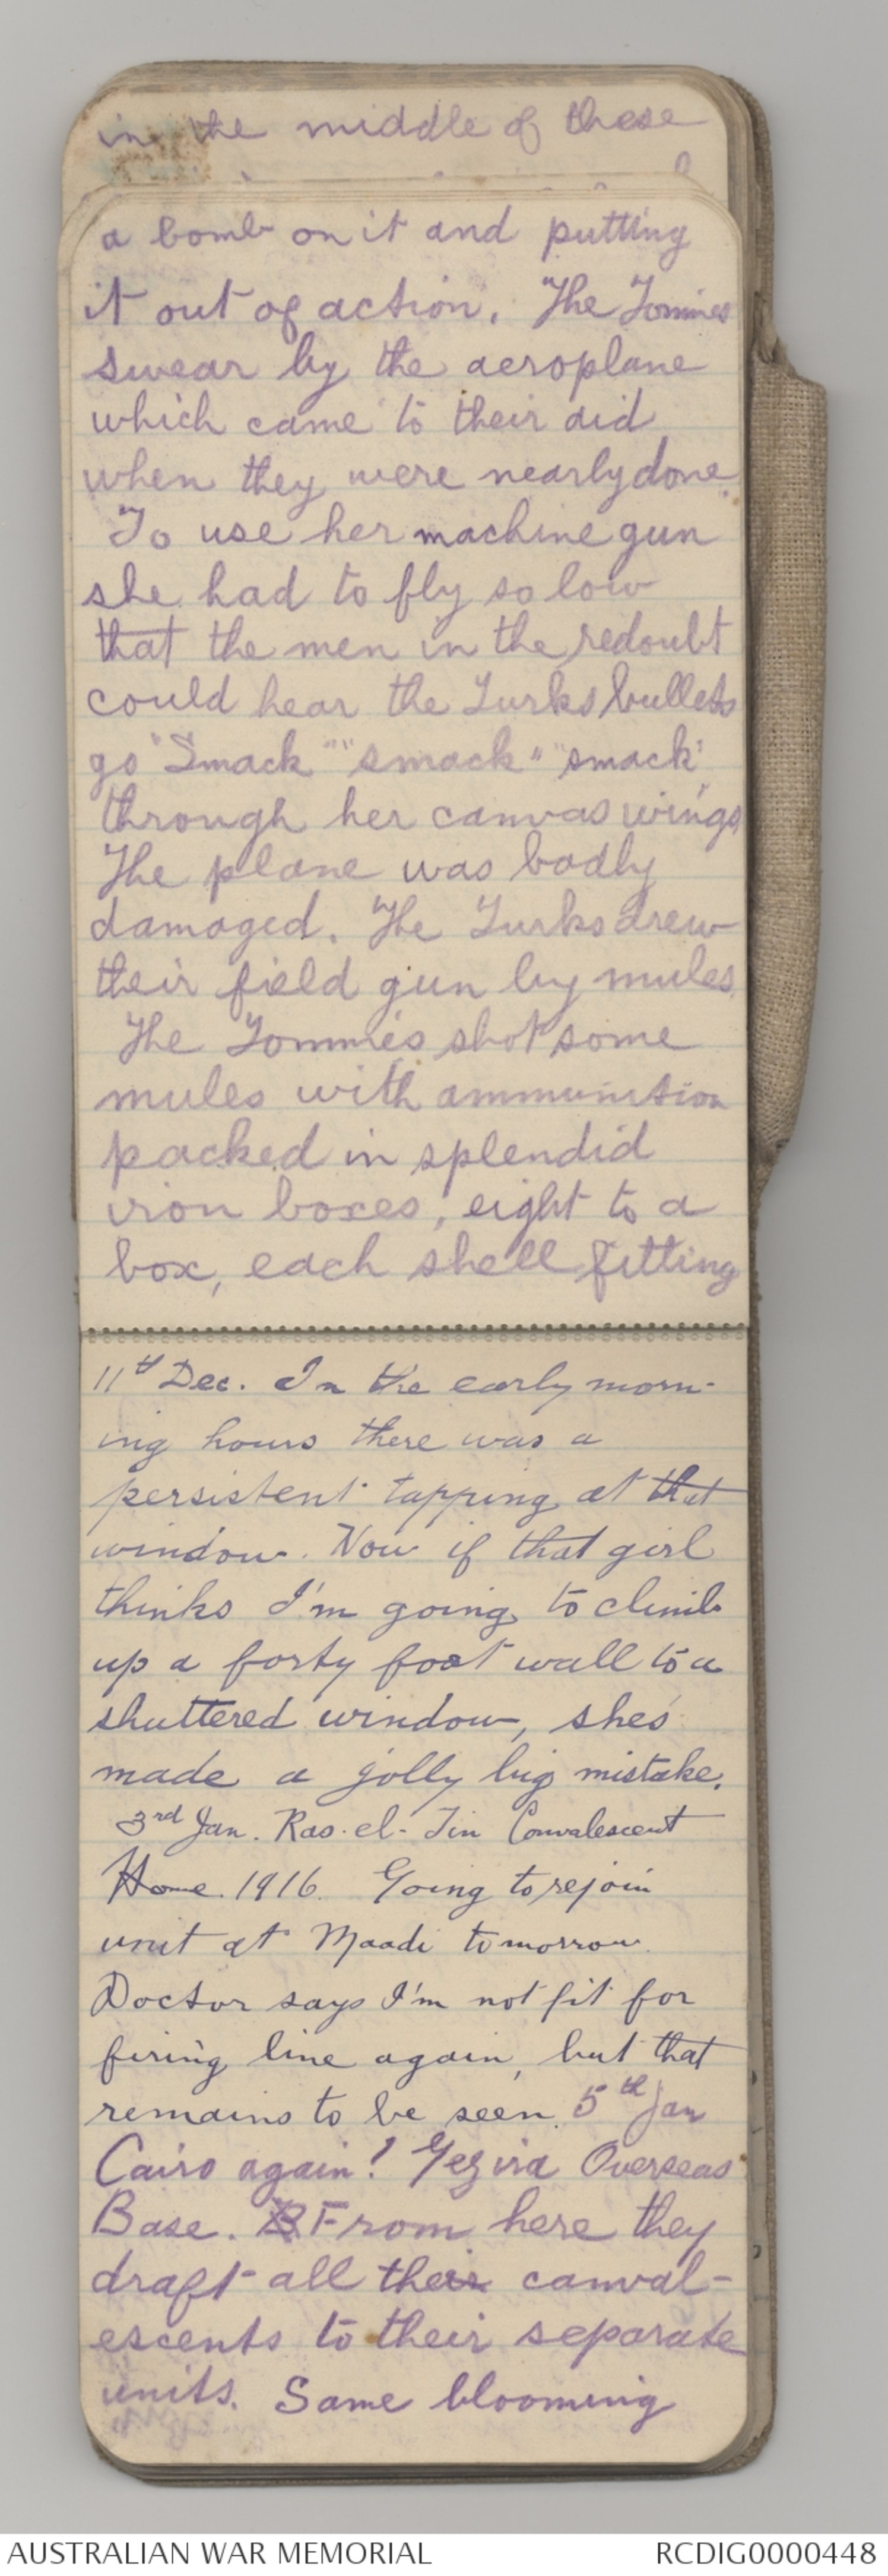 in the middle of these
a bomb on it and putting
it out of action. The Tommies
swear by the aeroplane
which came to their aid
when they were nearly done.
To use her machine gun
she had to fly so low
that the men in the redoubt
could hear the Turks bullets
go "Smack" "smack" "smack"
through her canvas wings
The plane was badly
damaged. The Turks drew
their field gun by mules.
The Tommies shot some
mules with ammunition
packed in splendid
iron boxes, eight to a
box, each shell fitting
11th Dec. In the early morn-
ing hours there was a
persistent tapping at that
window. Now if that girl
thinks I'm going to climb
up a forty foot wall to a
shuttered window, she's
made a jolly big mistake.
3rd Jan. Ras-el-Tin Convalescent
Home. 1916. Going to rejoin
unit at Maadi tomorrow.
Doctor says I'm not fit for
firing line again, but that
remains to be seen. 5th Jan
Cairo again! Gezira Overseas
Base. B From here they
draft all their canval-
escents to their separate
units. Same blooming
AUSTRALIAN WAR MEMORIAL RCDIG0000448